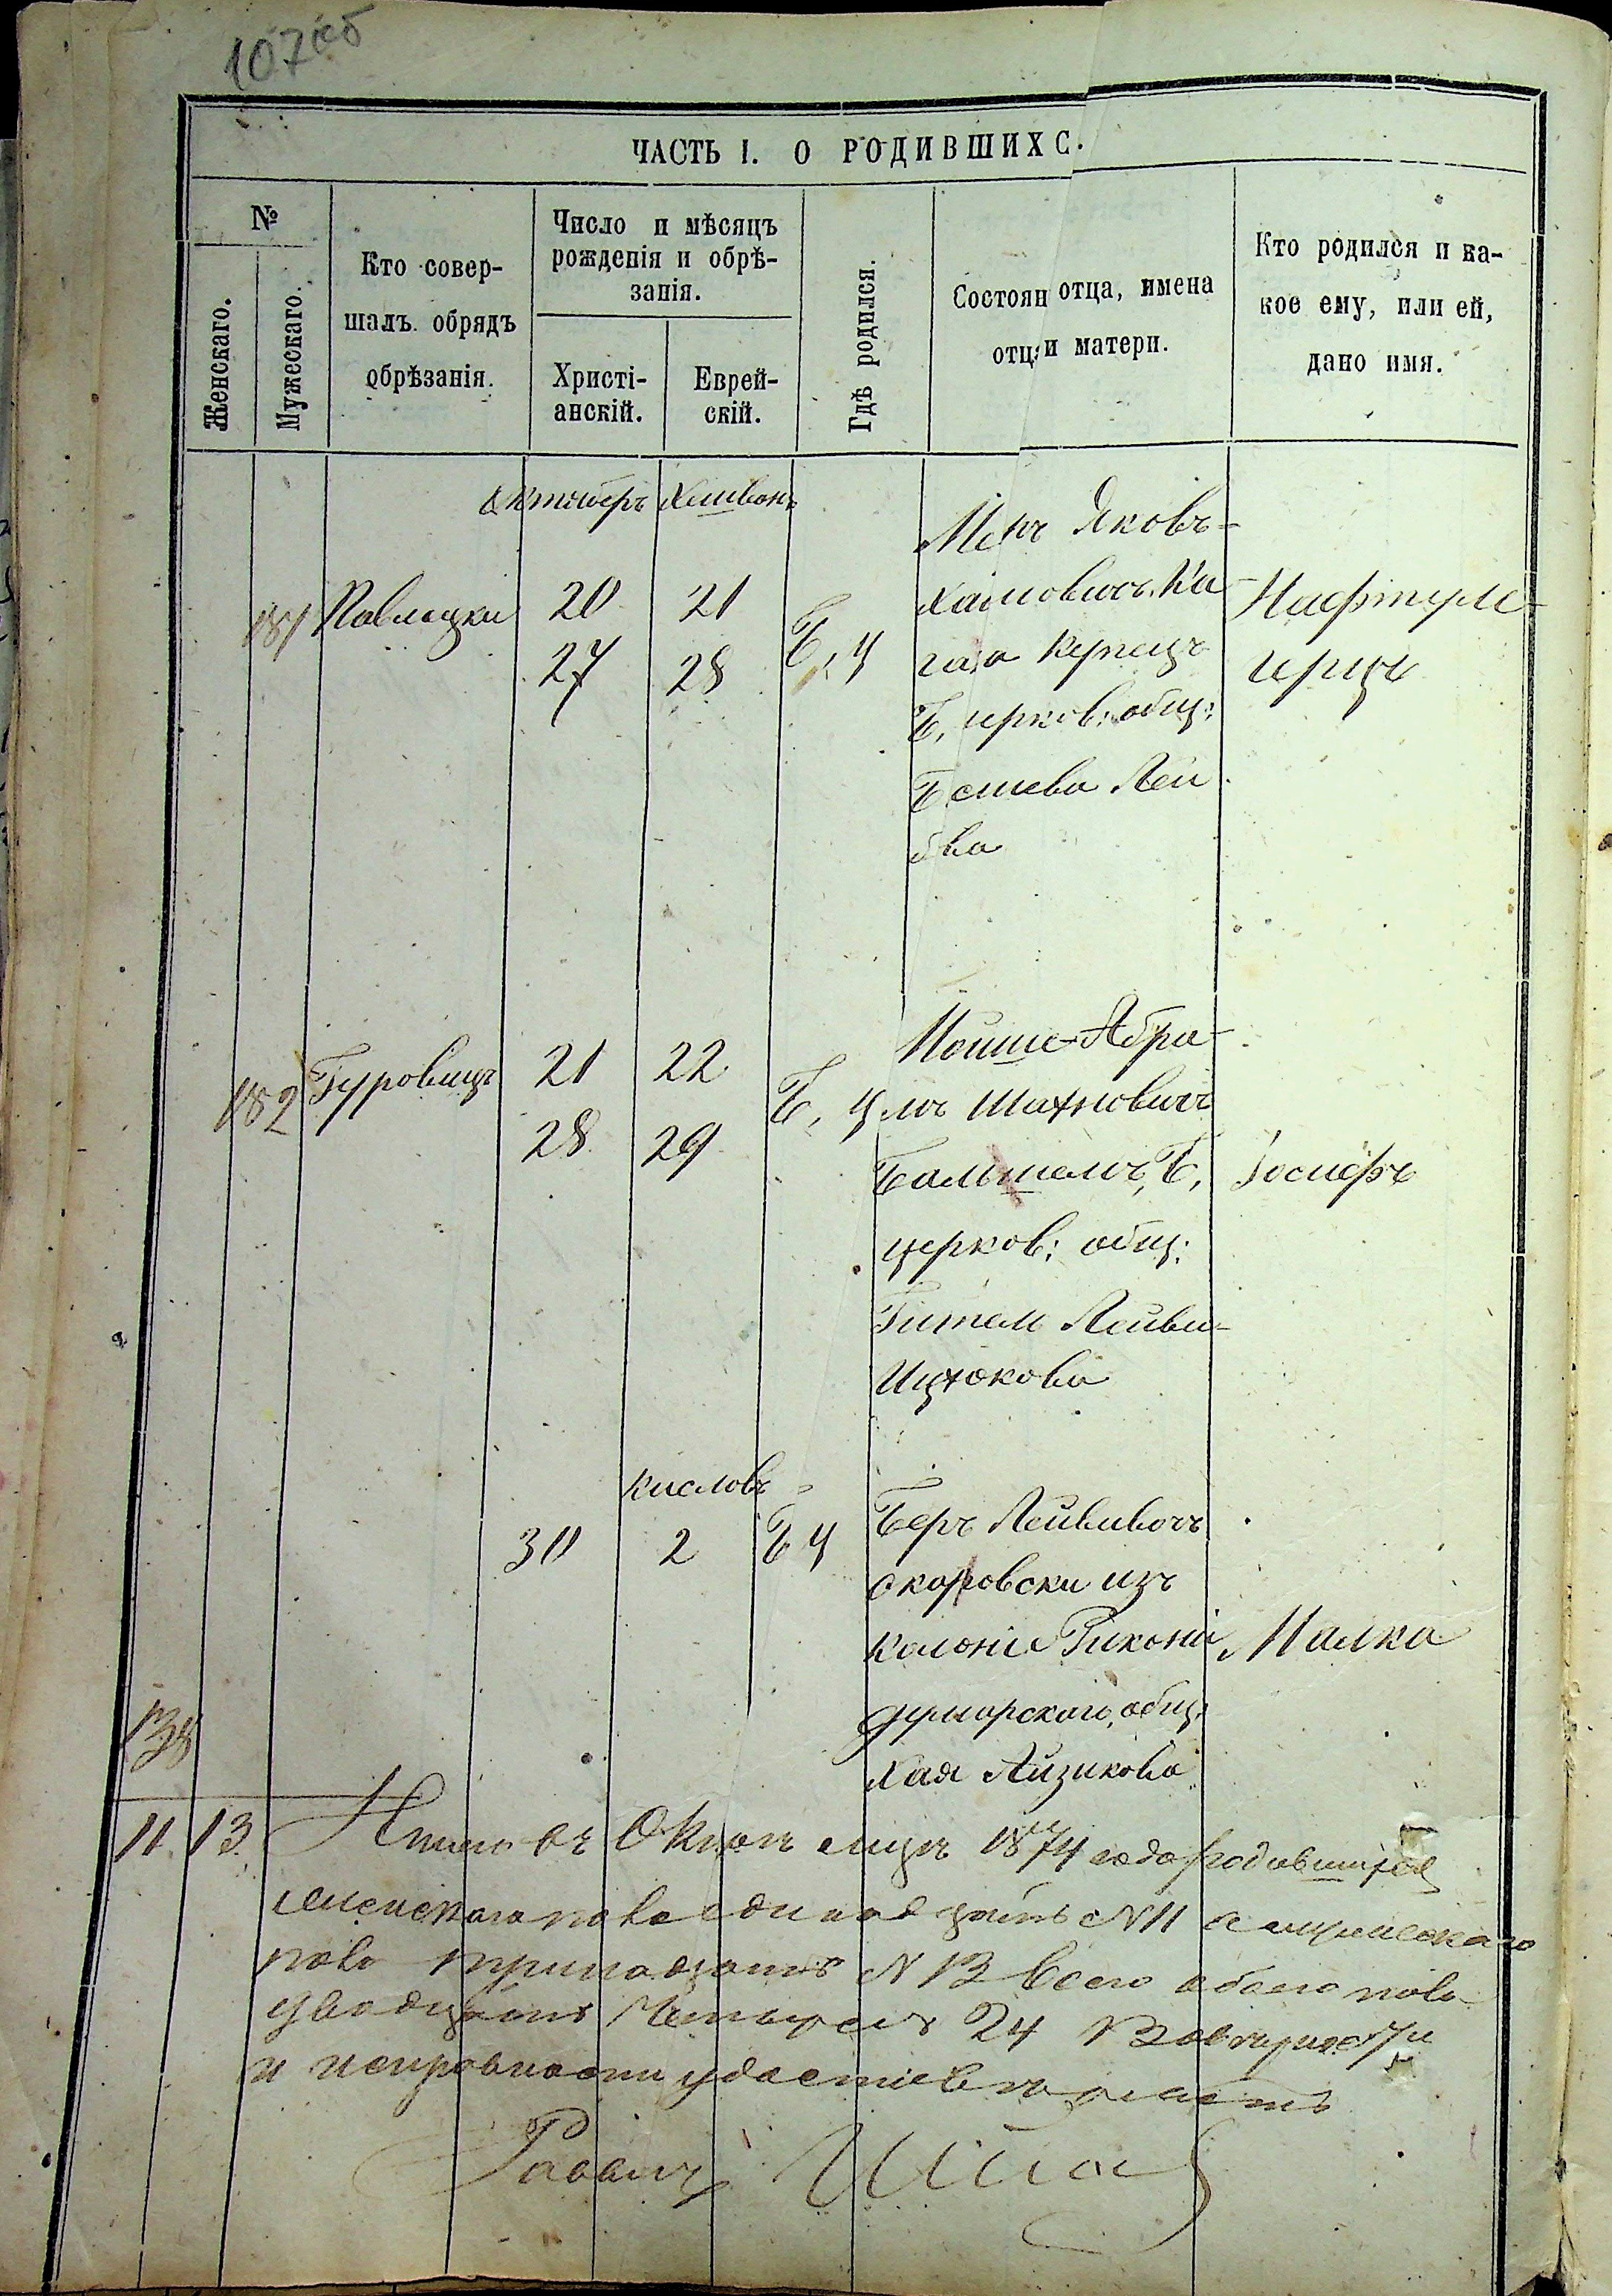 107об
ЧАСТЬ I. О РОДИВШИХС.
№
Женскаго.
Мужескаго.
Кто совер-
шалъ обрядъ
обрѣзанія.
Число и мѣсяцъ
рожденія и обрѣ-
занія.
Христі-
анскій.
Еврей-
скій.
Гдѣ родился.
Состоян отца, имена
отца и матери.
Кто родился и ка-
кое ему, или ей,
дано имя.
Октяберъ Хешвонъ
181 Павлоцки 20 21 Б, Ц
27 28
Яковъ-
Хаимовичъ Ка
ганъ Купецъ
Б, церков: общ:
Башева Лей
бва
Нафтуле-
Герцъ
182 Гуровицъ 21 22 Б, Ц
28 29
Мойше-Абра-
мъ Шахновичъ
Бальшемъ, Б,
церков: общ:
Гитель Лейви-
Ицхокова
Іосифъ
Кисловъ
138 30 2 Б Ц
Беръ Лейвивичъ
Скаровски изъ
Колоніи
общ:
Хая Айзикова
Малка
11. 13.
Итого въ Октяб мцѣ 1874 года родившихся
женскаго пола одинадцать N 11 а мужескаго
пола тринадцать N 13 всего обоего пола
двадцать четырехъ 24
и исправности удостовѣряетъ
Раввинъ